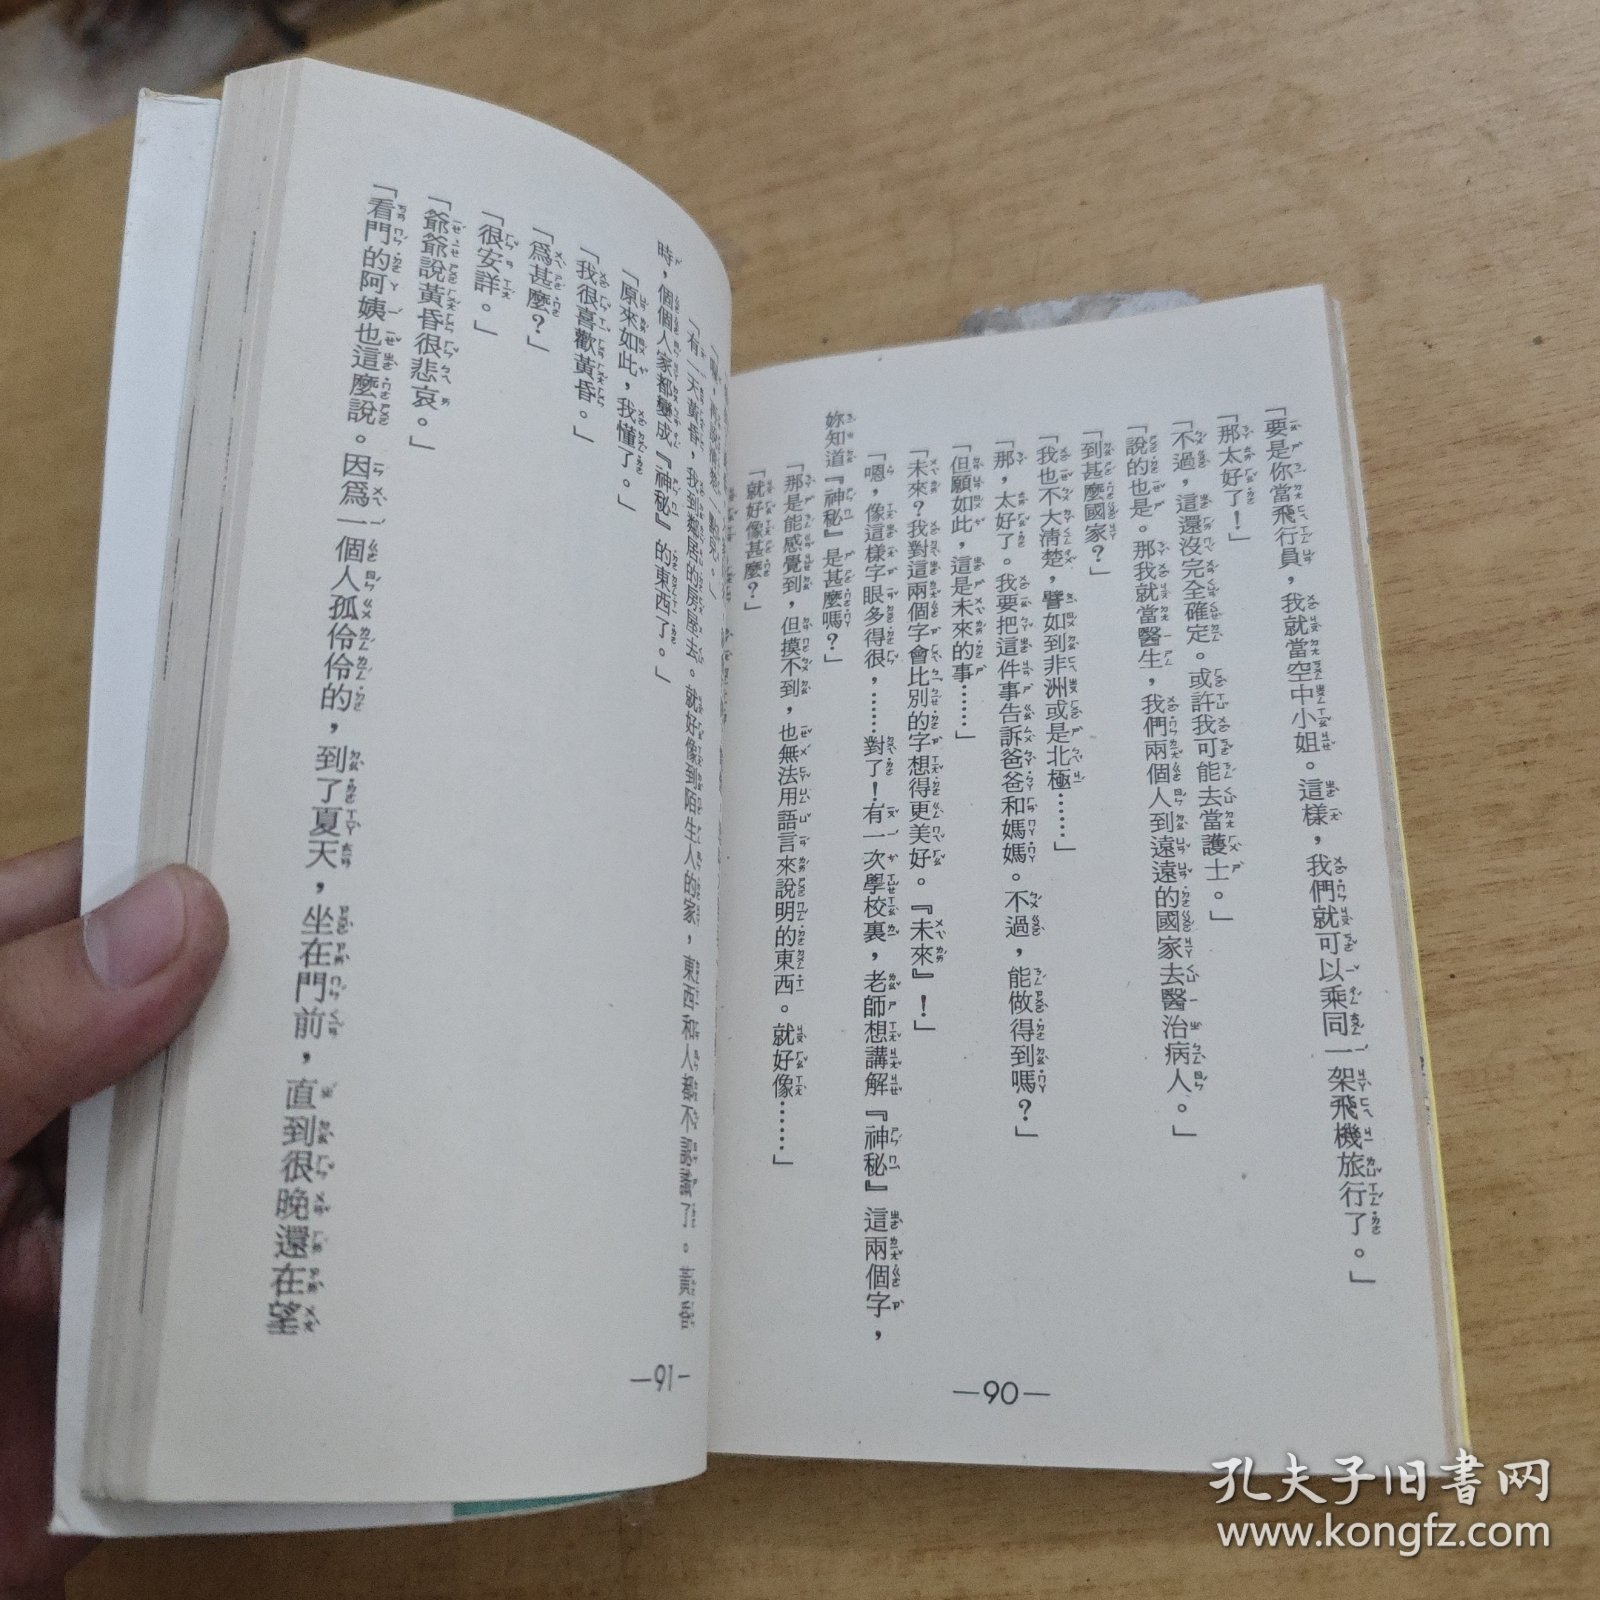 「要是你當飛行員，我就當空中小姐。這樣，我們就可以乘同一架飛機旅行了。」
「那太好了！」
「不過，這還沒完全確定。或許我可能去當護士。」
「說的也是。那我就當醫生，我們兩個人到遠遠的國家去醫治病人。」
「到甚麼國家？」
「我也不大清楚，譬如到非洲或是北極……」
「那，太好了。我要把這件事告訴爸爸和媽媽。不過，能做得到嗎？」
「但願如此，這是未來的事……」
「未來？我對這兩個字會比別的字想得更美好。『未來』！」
「嗯，像這樣字眼多得很，……對了！有一次學校裏，老師想講解『神秘』這兩個字，
妳知道『神秘』是甚麼嗎？」
「那是能感覺到，但摸不到，也無法用語言來說明的東西。就好像……」
「就好像甚麼？」
—90—
「有一天黃昏，我到鄰居的房屋去。就好像到陌生人的家，東西和人都不認識了。黃昏
時，個個人家都變成『神秘』的東西了。」
「原來如此，我懂了。」
「我很喜歡黃昏。」
「爲甚麼？」
「很安詳。」
「爺爺說黃昏很悲哀。」
「看門的阿姨也這麼說。因爲一個人孤伶伶的，到了夏天，坐在門前，直到很晚還在望
—91—
孔夫子旧书网
www.kongfz.com